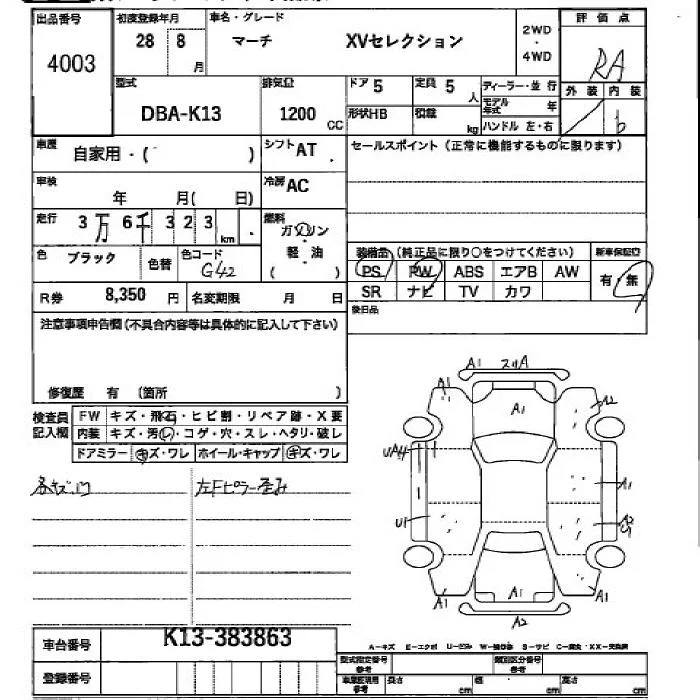 出品番号 初度登録年月 車名・グレード 評価点
4003 28 8月 マーチ XVセレクション 2WD・4WD RA
型式 排気量 ドア 5 定員 5人 ディーラー・並行 外装 内装
DBA-K13 1200cc 形状HB 積載 kg モデル年式 年 b
ハンドル 左・右
車歴 自家用・( ) シフト AT セールスポイント(正常に機能するものに限ります)
車検 年 月( 日) 冷房 AC
走行 3万 6千 3 2 3 km 燃料 ガソリン
軽・油
( )
色 ブラック 色替 色コード G42
装備品(純正品に限り○をつけてください) 新車保証書
PS PW ABS エアB AW 有・無
SR ナビ TV カワ
R券 8,350円 名変期限 月 日
後日品
注意事項申告欄(不具合内容等は具体的に記入して下さい)
修復歴 有 (箇所 )
検査員記入欄 FW キズ・飛石・ヒビ割・リペア跡・X要
内装 キズ・汚し・コゲ・穴・スレ・ヘタリ・破レ
ドアミラー キズ・ワレ ホイール・キャップ キズ・ワレ
左Fピラー歪み
A1 スリA
A1 A1 A2
A1
U1
A1 A1 A1
A2
車台番号 K13-383863
登録番号
A-キズ E-エクボ U-凹み S-サビ
型式指定番号 参考 類別区分番号 参考
長さ cm 幅 cm 高さ cm